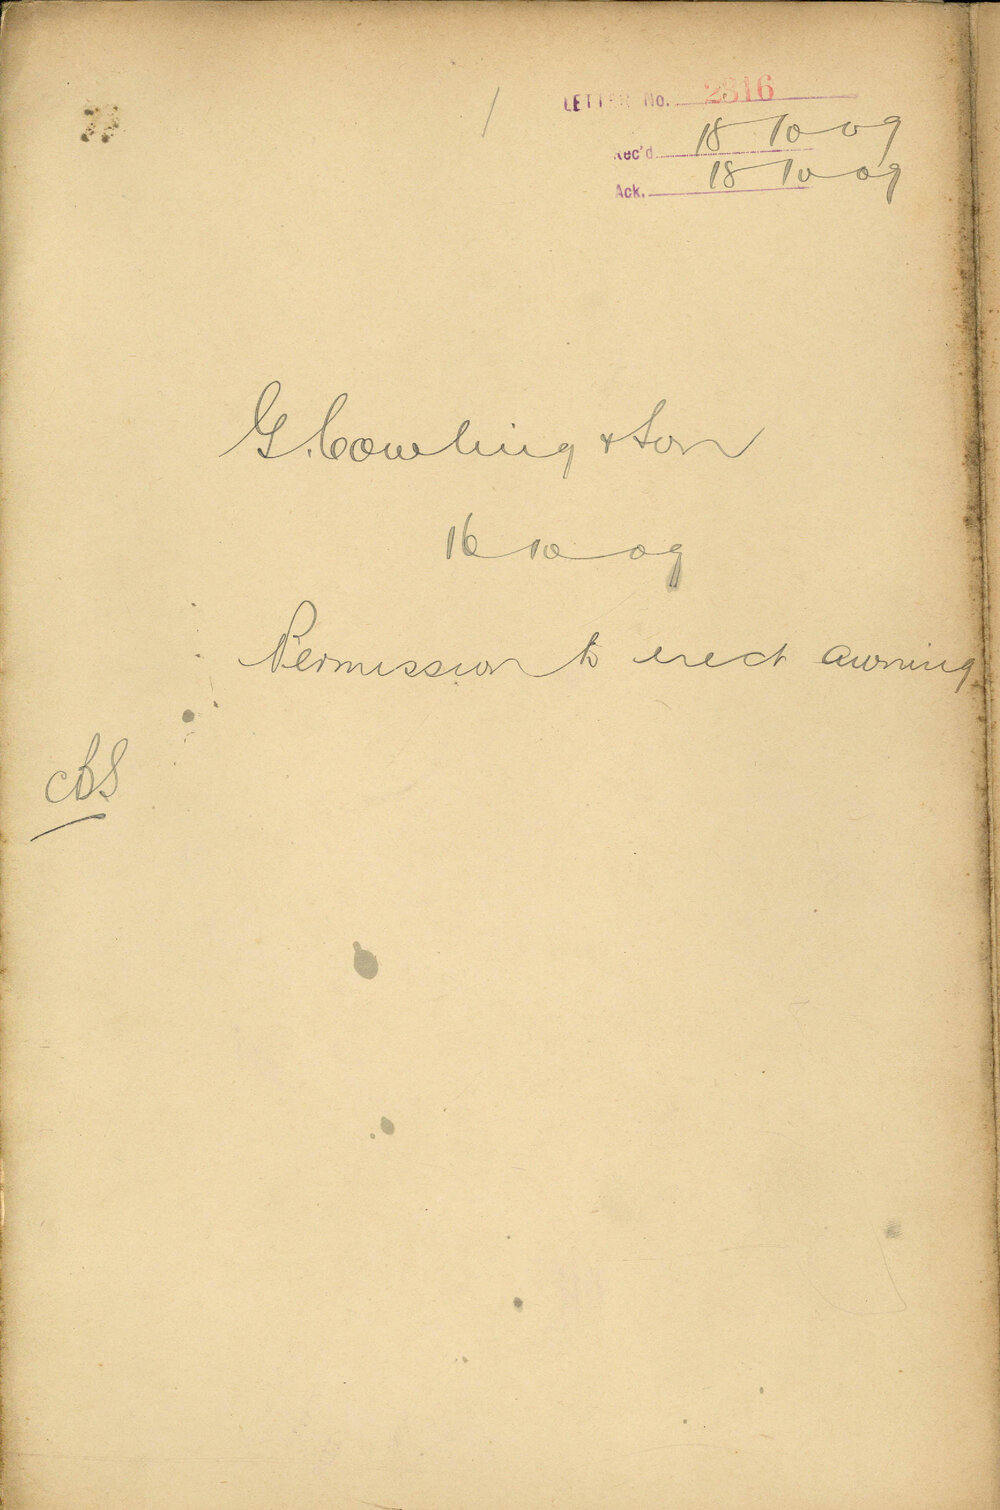 LETTER No. 2316
Rec'd 18 10 09
Ack. 18 10 09
G. Cowling & Son
16 10 09
Permission to erect awning